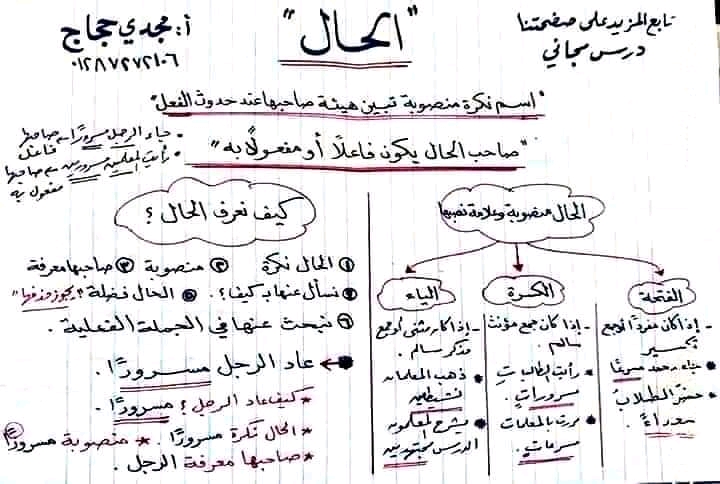 تابع المزيد على صفحتنا
درس مجاني
"الحال"
أ: مجدي حجاج
٠١٢٨٧٢٧٢١٠٦
"اسم نكرة منصوبة تبين هيئة صاحبها عند حدوث الفعل"
"صاحب الحال يكون فاعلًا أو مفعولًا به"
• جاء الرجل مسرورًا صاحبها فاعل
• رأيت المعلمين مسرورين صاحبها مفعول به
الحال منصوبة وعلامة نصبها
الفتحة
- إذا كان مفردًا أو جمع
تكسير
• جاء محمد مسرعًا
• حضر الطلابُ
سعداءً.
الكسرة
- إذا كان جمع مؤنث
سالم.
• رأيت الطالباتِ
مسروراتٍ.
• مررت بالمعلمات
مسرعاتٍ.
الياء
- إذا كان مثنى أو جمع
مذكر سالم.
• ذهب المعلمان
نشيطين
• يشرح المعلمون
الدرس مجتهدين
كيف نعرف الحال؟
① الحال نكرة ② منصوبة ③ صاحبها معرفة
④ نسأل عنها بـ كيف؟. ⑤ الحال فضلة "يجوز حذفها"
⑥ نبحث عنها في الجملة الفعلية.
عاد الرجل مسرورًا.
* كيف عاد الرجل؟ مسرورًا.
* الحال نكرة مسرورًا. * منصوبة مسرورًا
* صاحبها معرفة الرجل.